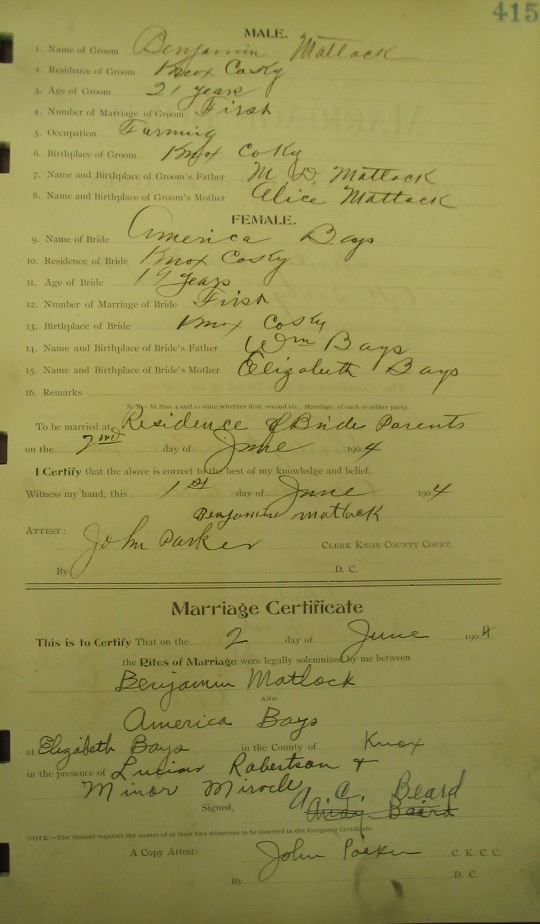 415
MALE.
1. Name of Groom Benjamin Matlock
2. Residence of Groom Knox Co Ky
3. Age of Groom 21 years
4. Number of Marriage of Groom First
5. Occupation Farming
6. Birthplace of Groom Knox Co Ky
7. Name and Birthplace of Groom's Father M. D. Matlock
8. Name and Birthplace of Groom's Mother Alice Matlock
FEMALE.
9. Name of Bride America Bays
10. Residence of Bride Knox Co Ky
11. Age of Bride 19 years
12. Number of Marriage of Bride First
13. Birthplace of Bride Knox Co Ky
14. Name and Birthplace of Bride's Father Wm Bays
15. Name and Birthplace of Bride's Mother Elizabeth Bays
16. Remarks
N. B.—At Nos. 4 and 12 state whether first, second etc., Marriage, of each or either party.
To be married at Residence of Brides Parents
on the 2nd day of June 1904
I Certify that the above is correct to the best of my knowledge and belief.
Witness my hand, this 1st day of June 1904
Benjamin Matlock
ATTEST:
John Parker CLERK KNOX COUNTY COURT.
By D. C.
Marriage Certificate
This is to Certify That on the 2 day of June 1904
the Rites of Marriage were legally solemnized by me between
Benjamin Matlock
AND
America Bays
at Elizabeth Bays in the County of Knox
in the presence of Lucian Robertson +
Minor Miracle
A. C. Beard
Signed, Andy Baird
NOTE.—The Statute requires the names of at least two witnesses to be inserted in the foregoing Certificate.
A Copy Attest: John Parker C. K. C. C.
By D. C.